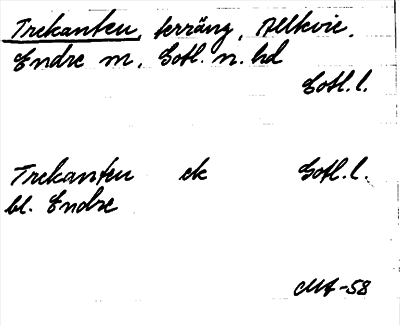 Trekanten, terräng, Allkvie,
Endre sn, Gotl. n. hd
Gotl. l.
Trekanten ek Gotl. l.
bl. Endre
MA-58